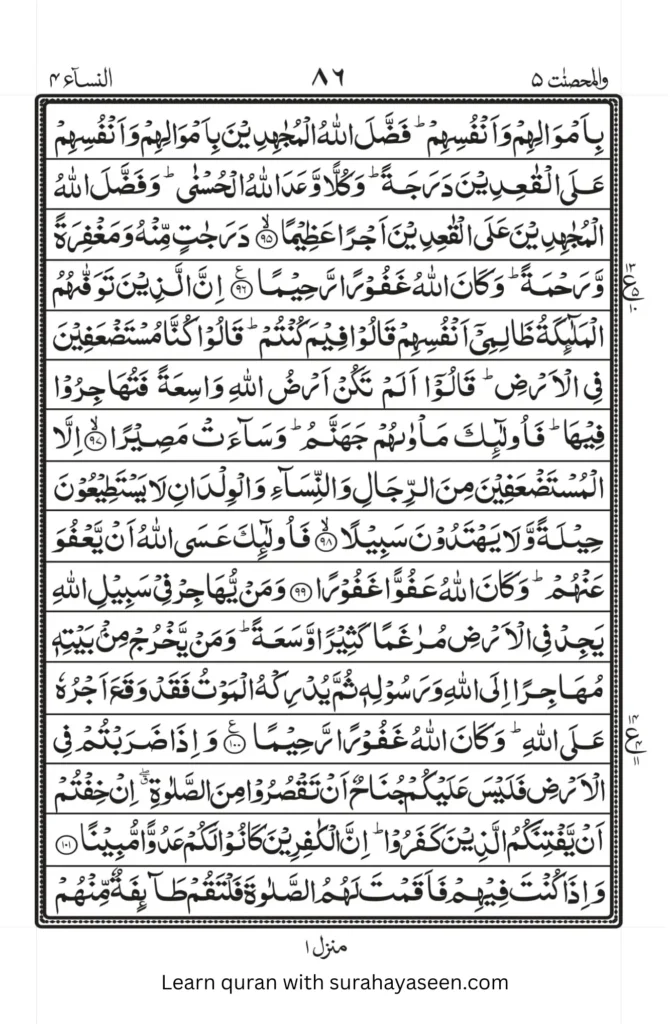 والمحصنٰت ۵ ۸۶ النسآء ۴
بِاَمۡوَالِهِمۡ وَاَنۡفُسِهِمۡ ؕ فَضَّلَ اللّٰهُ الۡمُجٰهِدِيۡنَ بِاَمۡوَالِهِمۡ وَاَنۡفُسِهِمۡ
عَلَى الۡقٰعِدِيۡنَ دَرَجَةً ؕ وَكُلًّا وَّعَدَ اللّٰهُ الۡحُسۡنٰى ؕ وَفَضَّلَ اللّٰهُ
الۡمُجٰهِدِيۡنَ عَلَى الۡقٰعِدِيۡنَ اَجۡرًا عَظِيۡمًا ۙ‏﴿۹۵﴾ دَرَجٰتٍ مِّنۡهُ وَمَغۡفِرَةً
وَّرَحۡمَةً ؕ وَكَانَ اللّٰهُ غَفُوۡرًا رَّحِيۡمًا ﴿۹۶﴾ ع اِنَّ الَّذِيۡنَ تَوَفّٰٮهُمُ
ع ۱۳ ۵ ۱۰
الۡمَلٰٓٮِٕكَةُ ظَالِمِىۡۤ اَنۡفُسِهِمۡ قَالُوۡا فِيۡمَ كُنۡتُمۡ ؕ قَالُوۡا كُنَّا مُسۡتَضۡعَفِيۡنَ
فِى الۡاَرۡضِ ؕ قَالُوۡۤا اَلَمۡ تَكُنۡ اَرۡضُ اللّٰهِ وَاسِعَةً فَتُهَاجِرُوۡا
فِيۡهَا ؕ فَاُولٰٓٮِٕكَ مَاۡوٰٮهُمۡ جَهَنَّمُ ؕ وَسَآءَتۡ مَصِيۡرًا ۙ‏﴿۹۷﴾ اِلَّا
الۡمُسۡتَضۡعَفِيۡنَ مِنَ الرِّجَالِ وَالنِّسَآءِ وَالۡوِلۡدَانِ لَا يَسۡتَطِيۡعُوۡنَ
حِيۡلَةً وَّلَا يَهۡتَدُوۡنَ سَبِيۡلًا ۙ‏﴿۹۸﴾ فَاُولٰٓٮِٕكَ عَسَى اللّٰهُ اَنۡ يَّعۡفُوَ
عَنۡهُمۡ ؕ وَكَانَ اللّٰهُ عَفُوًّا غَفُوۡرًا ﴿۹۹﴾ وَمَنۡ يُّهَاجِرۡ فِىۡ سَبِيۡلِ اللّٰهِ
يَجِدۡ فِى الۡاَرۡضِ مُرٰغَمًا كَثِيۡرًا وَّسَعَةً ؕ وَمَنۡ يَّخۡرُجۡ مِنۡۢ بَيۡتِهٖ
مُهَاجِرًا اِلَى اللّٰهِ وَرَسُوۡلِهٖ ثُمَّ يُدۡرِكۡهُ الۡمَوۡتُ فَقَدۡ وَقَعَ اَجۡرُهٗ
عَلَى اللّٰهِ ؕ وَكَانَ اللّٰهُ غَفُوۡرًا رَّحِيۡمًا ﴿۱۰۰﴾ ع وَاِذَا ضَرَبۡتُمۡ فِى
ع ۱۴ ۴ ۱۱
الۡاَرۡضِ فَلَيۡسَ عَلَيۡكُمۡ جُنَاحٌ اَنۡ تَقۡصُرُوۡا مِنَ الصَّلٰوةِ ۖ اِنۡ خِفۡتُمۡ
اَنۡ يَّفۡتِنَكُمُ الَّذِيۡنَ كَفَرُوۡا ؕ اِنَّ الۡكٰفِرِيۡنَ كَانُوۡا لَكُمۡ عَدُوًّا مُّبِيۡنًا ﴿۱۰۱﴾
وَاِذَا كُنۡتَ فِيۡهِمۡ فَاَقَمۡتَ لَهُمُ الصَّلٰوةَ فَلۡتَقُمۡ طَآٮِٕفَةٌ مِّنۡهُمۡ
منزل ۱
Learn quran with surahayaseen.com